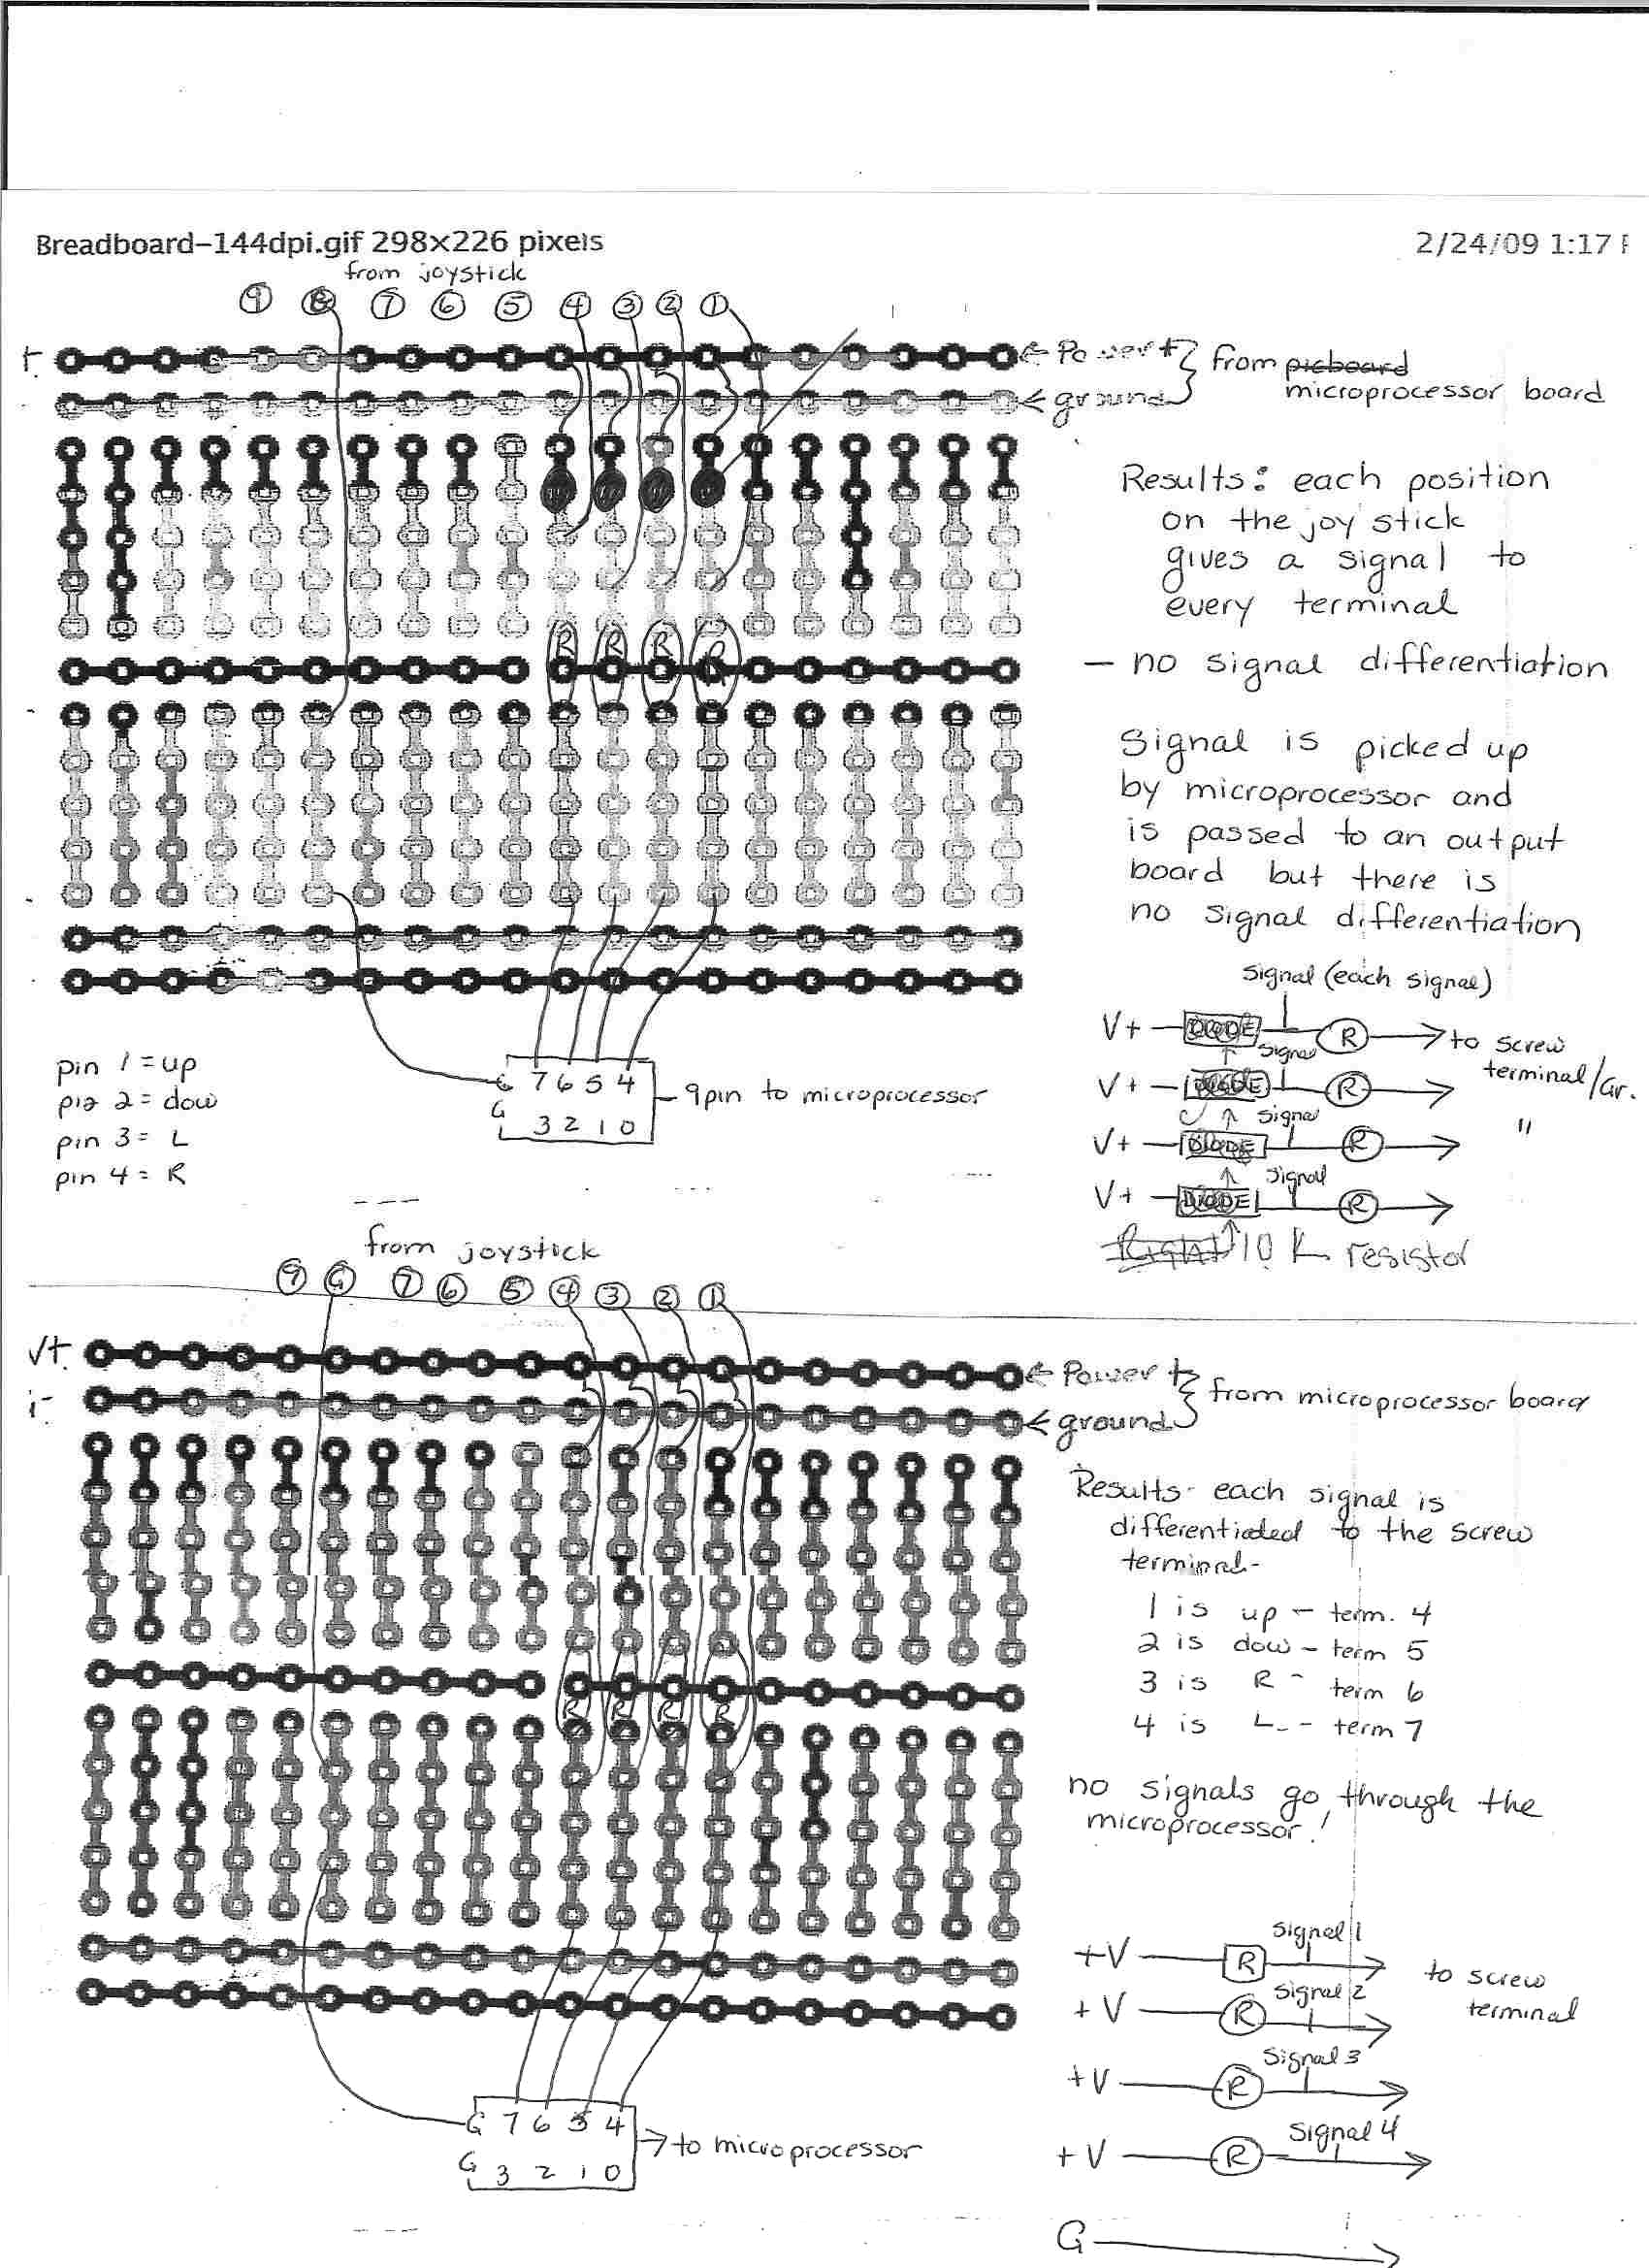 Breadboard-144dpi.gif 298×226 pixels
2/24/09 1:17
from joystick
9 8 7 6 5 4 3 2 1
← Power +
← ground
from picboard
microprocessor board
Results: each position
on the joystick
gives a signal to
every terminal
— no signal differentiation
R R R R
Signal is picked up
by microprocessor and
is passed to an output
board but there is
no signal differentiation
pin 1 = up
pin 2 = dow
pin 3 = L
pin 4 = R
G 7 6 5 4
G 3 2 1 0
9pin to microprocessor
Signal (each signal)
V+ DIODE R to screw
terminal/Gr.
Signal
V+ DIODE R
Signal
V+ DIODE R "
Signal
V+ DIODE R
10 K resistor
from joystick
9 G 7 6 5 4 3 2 1
V+
← Power +
← ground
from microprocessor board
Results- each signal is
differentiated to the screw
terminal-
1 is up - term. 4
2 is dow - term 5
3 is R - term 6
4 is L - term 7
R R R R
no signals go through the
microprocessor!
G 7 6 5 4
G 3 2 1 0
→ to microprocessor
+V R Signal 1
to screw
terminal
+V R Signal 2
+V R Signal 3
+V R Signal 4
G